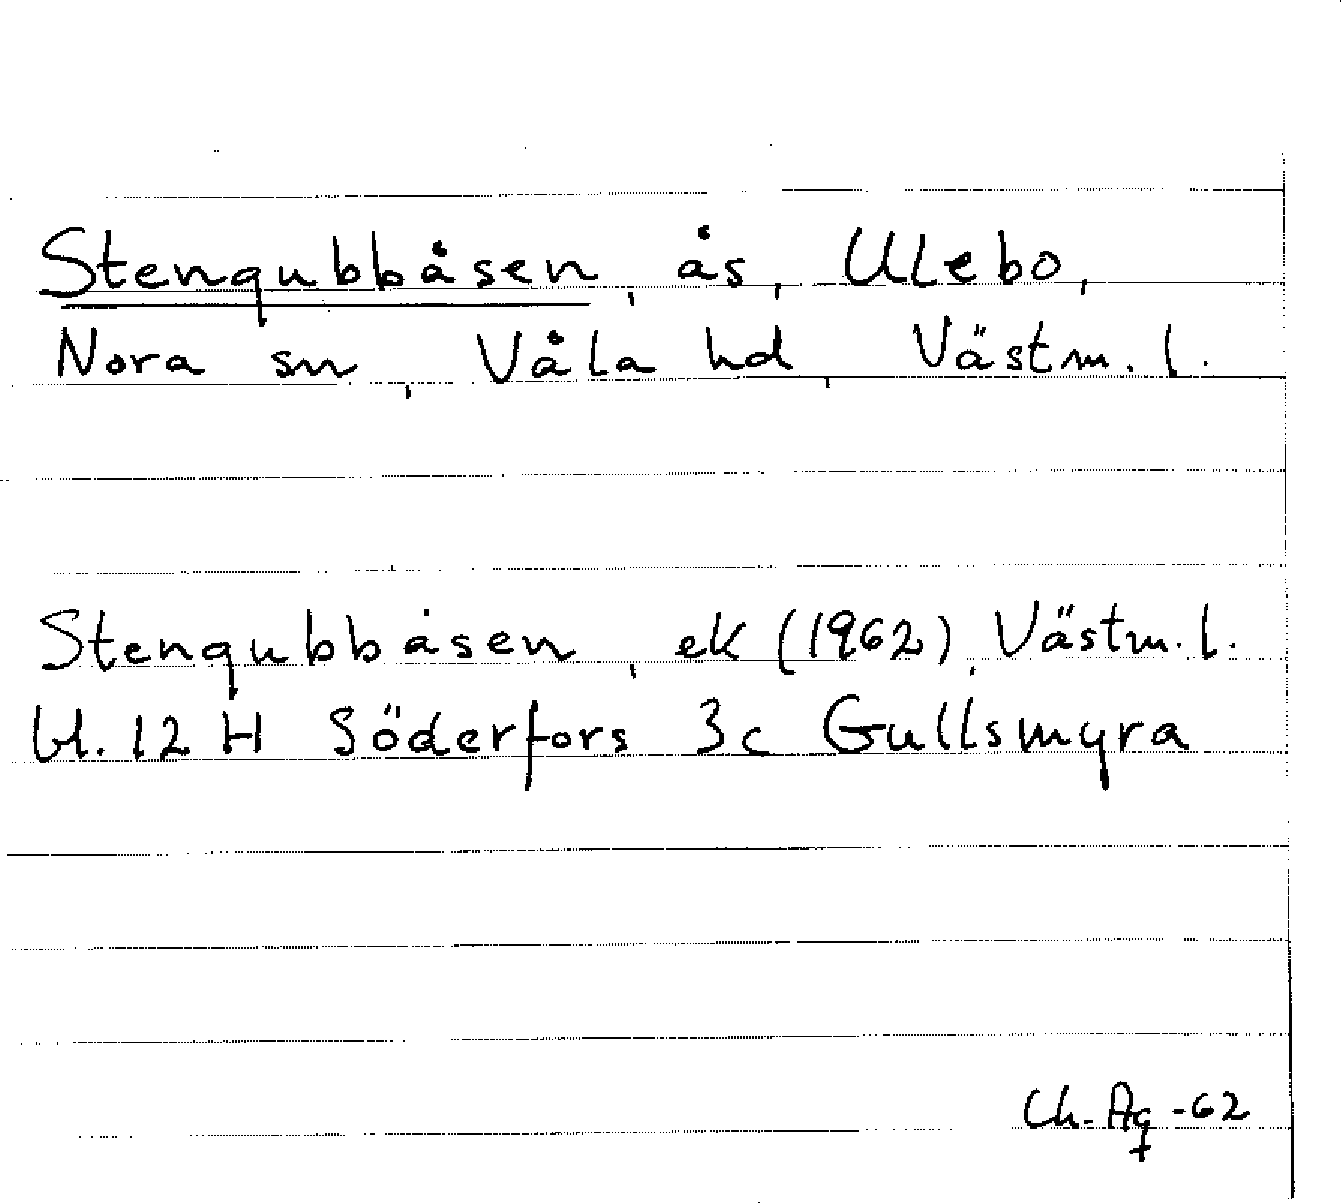 Stengubbåsen, ås, Ulebo,
Nora sn, Våla hd, Västm. l.
Stengubbåsen, ek (1962), Västm. l.
bl. 12 H Söderfors 3c Gullsmyra
Ch. Ag -62